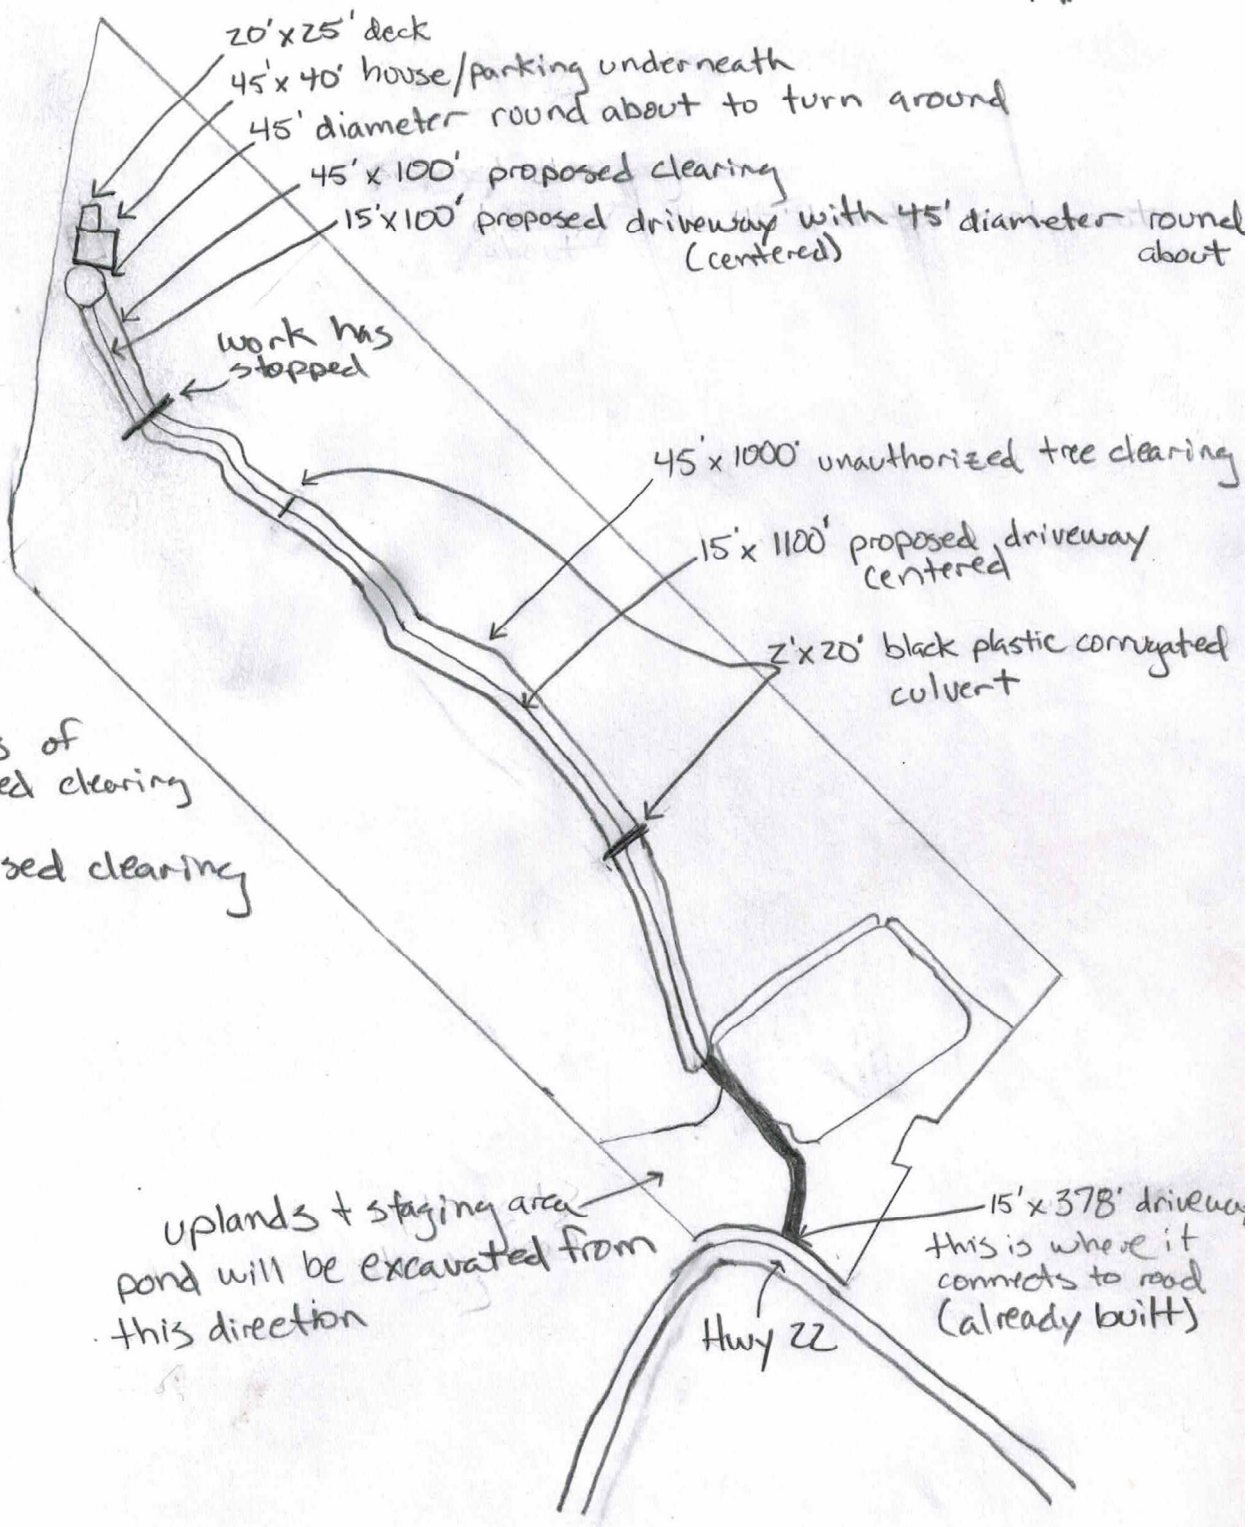 20'x25' deck
45'x40' house/parking underneath
45' diameter round about to turn around
45' x 100' proposed clearing
15'x100' proposed driveway with 45' diameter round
(centered) about
work has
stopped
45'x1000' unauthorized tree clearing
15'x 1100' proposed driveway
centered
2'x20' black plastic corrugated
culvert
of
clearing
clearing
uplands + staging area
pond will be excavated from
this direction
15'x 378'
this is where it
connects to road
(already built)
Hwy 22